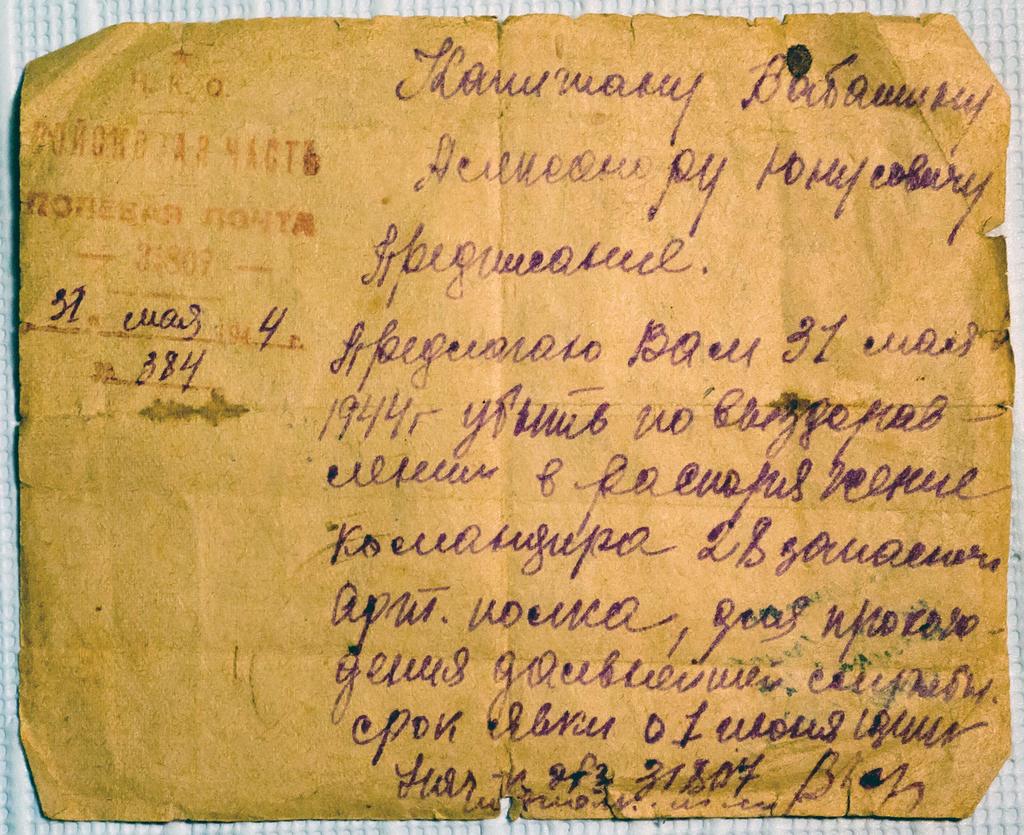 Н. К. О.
ВОЙСКОВАЯ ЧАСТЬ
ПОЛЕВАЯ ПОЧТА
— 31807 —
31 " мая 194 4 г.
№ 384
Капитану Вабашкину
Александру Юнусовичу
Предписание.
Предлагаю Вам 31 мая
1944г убыть по выздорав-
лении в распоряжение
командира 28 запасного
арт. полка, для прохож-
дения дальнейшей службы.
срок явки 01 июня
Нач-к 31807